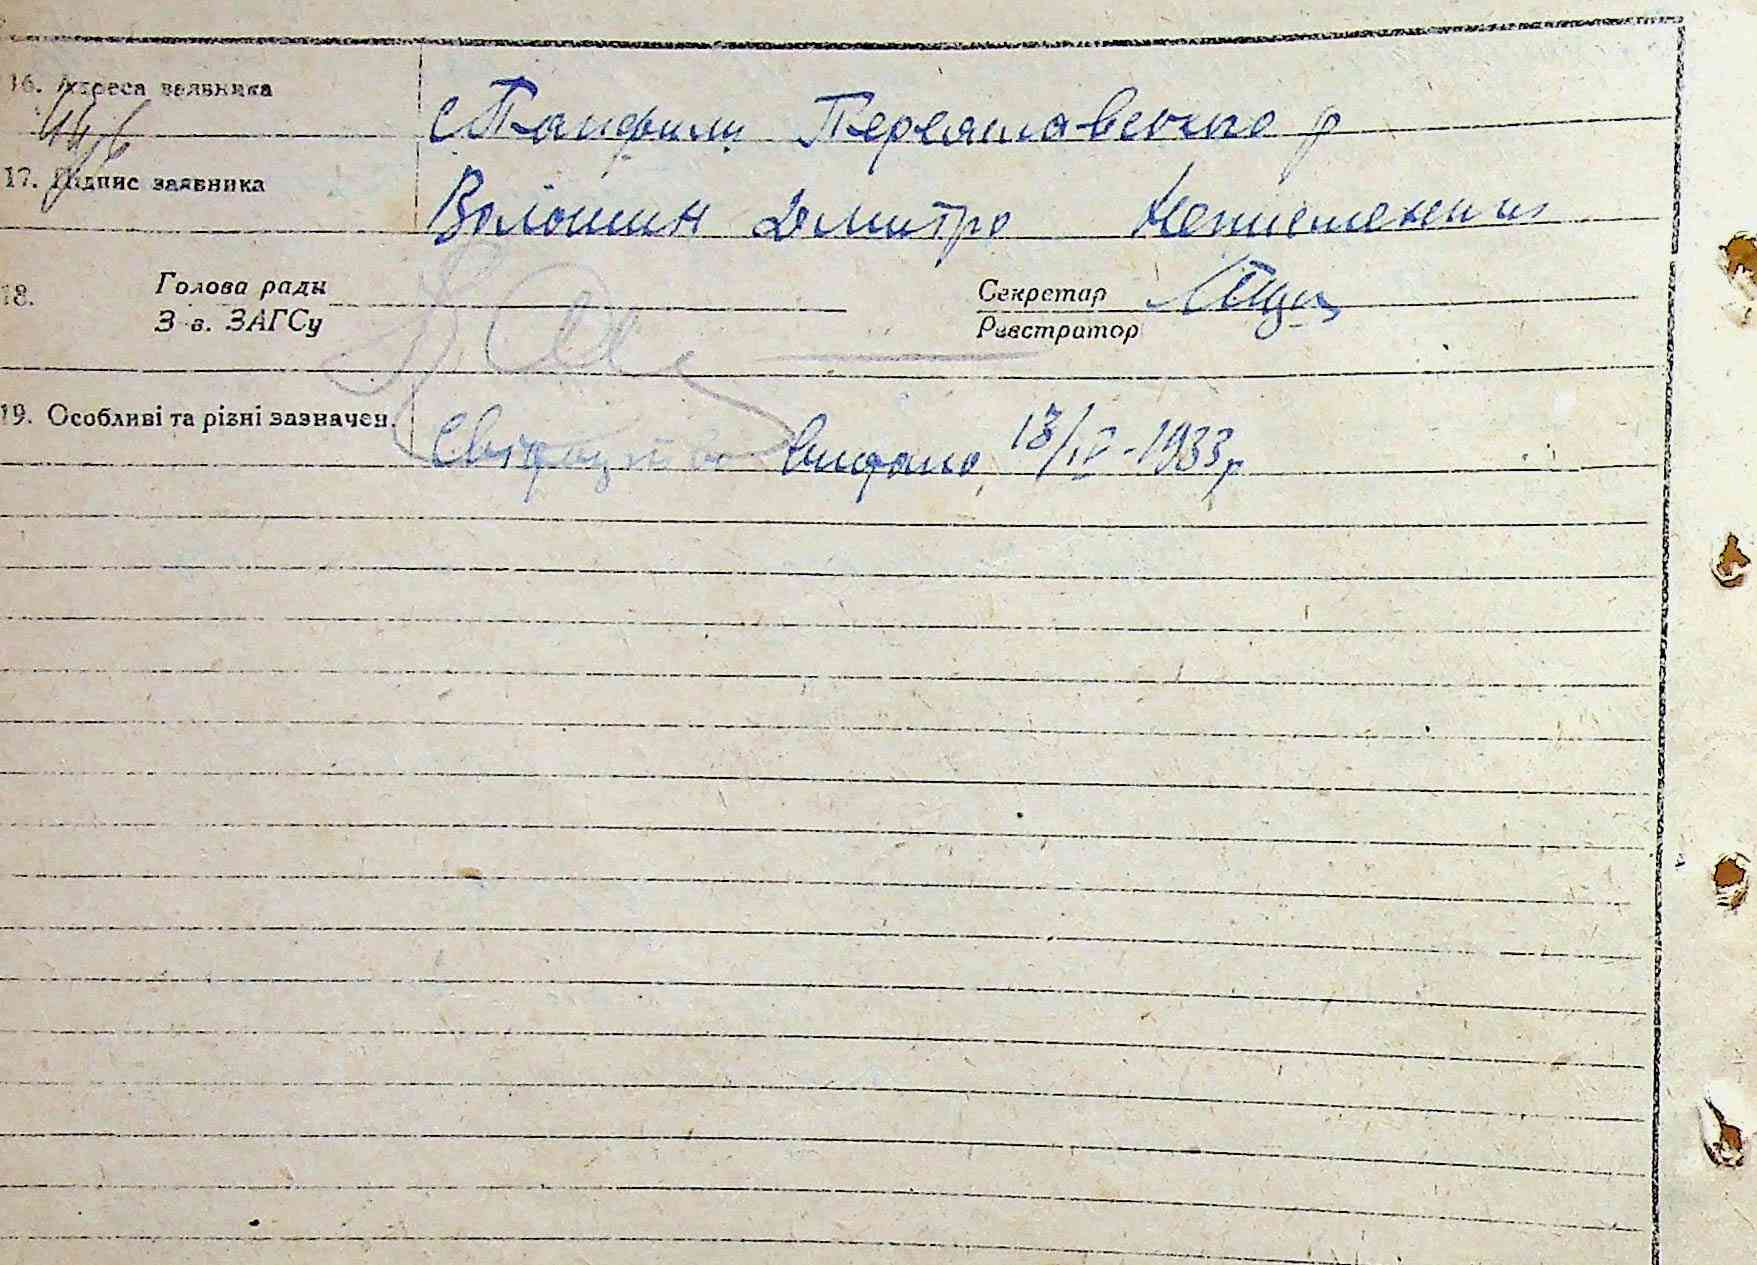 16. Адреса заявника
с Панфили Переяславського р
17. Підпис заявника
Волошин Дмитро Неписменний
18. Голова ради
З в. ЗАГСу
Секретар
Реєстратор
19. Особливі та різні зазначен.
Свідоцтво видано 13/IV-1933р